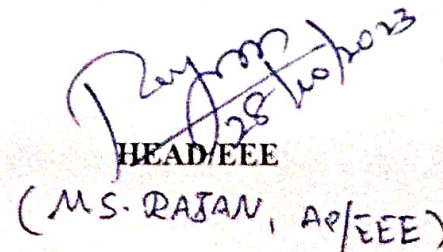 28/10/2023
HEAD/EEE
(M.S. RAJAN, AP/EEE)